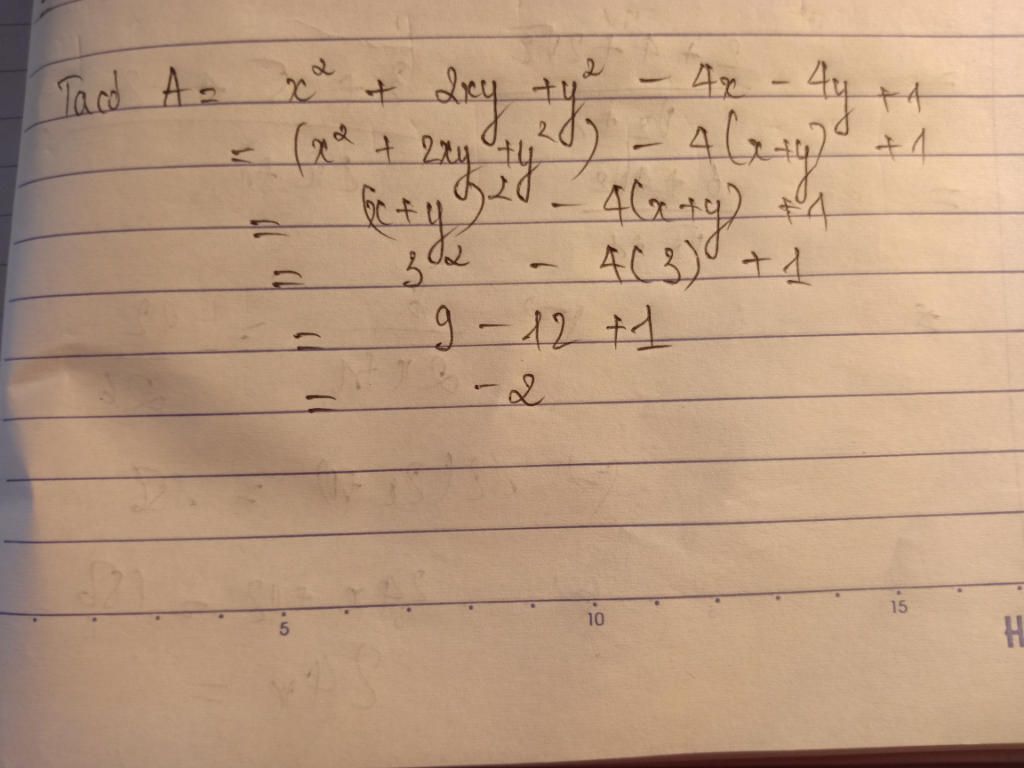 Ta có A = x² + 2xy + y² - 4x - 4y + 1
= (x² + 2xy + y²) - 4(x+y) + 1
= (x+y)² - 4(x+y) + 1
= 3² - 4(3) + 1
= 9 - 12 + 1
= -2
5 10 15
H